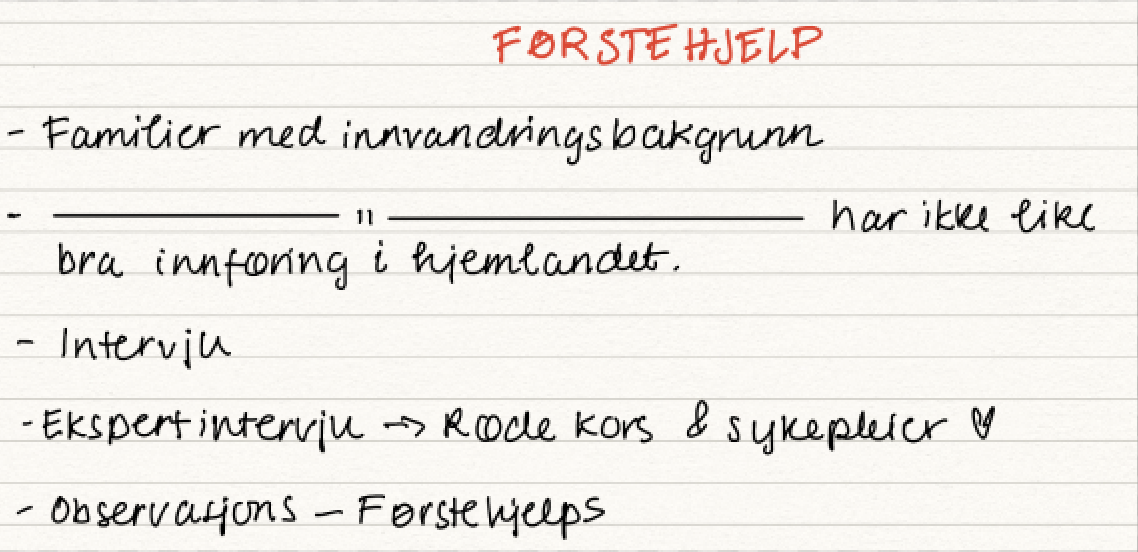 FØRSTEHJELP
- Familier med innvandringsbakgrunn
- ———— " ———— har ikke like
bra innføring i hjemlandet.
- Intervju
- Ekspertintervju → Røde kors & sykepleier ♡
- Observasjons – Førstehjelps